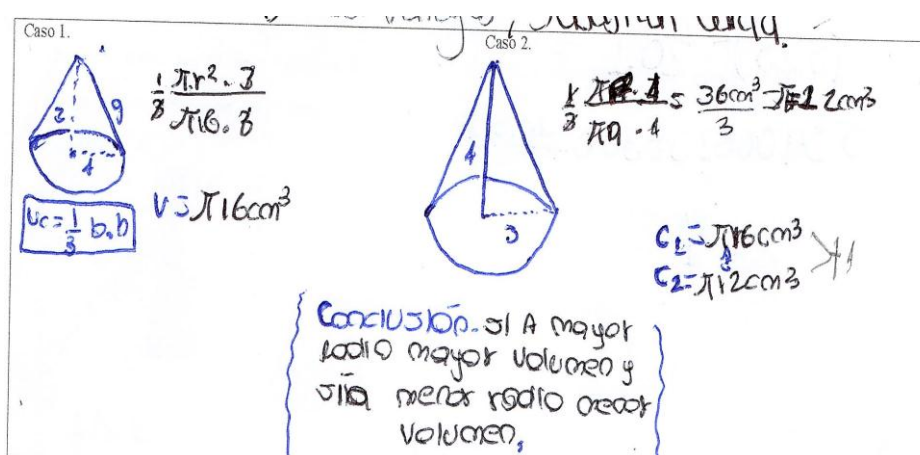 Caso 1.
Caso 2.
1/3 π.r² . 3
π16 . 3
2
9
4
Vc = 1/3 b.h
V = π16cm³
1/3
π9 . 4
= 36cm³/3 = π12cm³
4
3
C1 = π16cm³
C2 = π12cm³
Conclusión. si A mayor
radio mayor volumen y
si a menor radio menor
volumen,